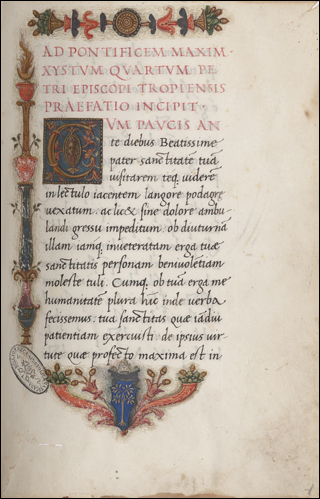 AD PONTIFICEM MAXIM
XYSTVM QVARTVM PE
TRI EPISCOPI TROPIENSIS
PRAEFATIO INCIPIT·
CVM PAVCIS AN
te diebus Beatissime
pater sanctitatē tuā
uisitarem teq. uiderē
in lectulo iacentem langore podagre
uexatum. ac lic& sine dolore ambu
landi gressu impeditum ob diuturnā
illam iamq. inueteratam erga tuae
sanctitatis personam beniuolētiam
moleste tuli. Cumq. ob tuā erga me
humanitatē plura hīc inde uerba
fecissemus: tua sanctitas quae iādiu
patientiam exercuisti de ipsius uir
tute quae profecto maxima est in